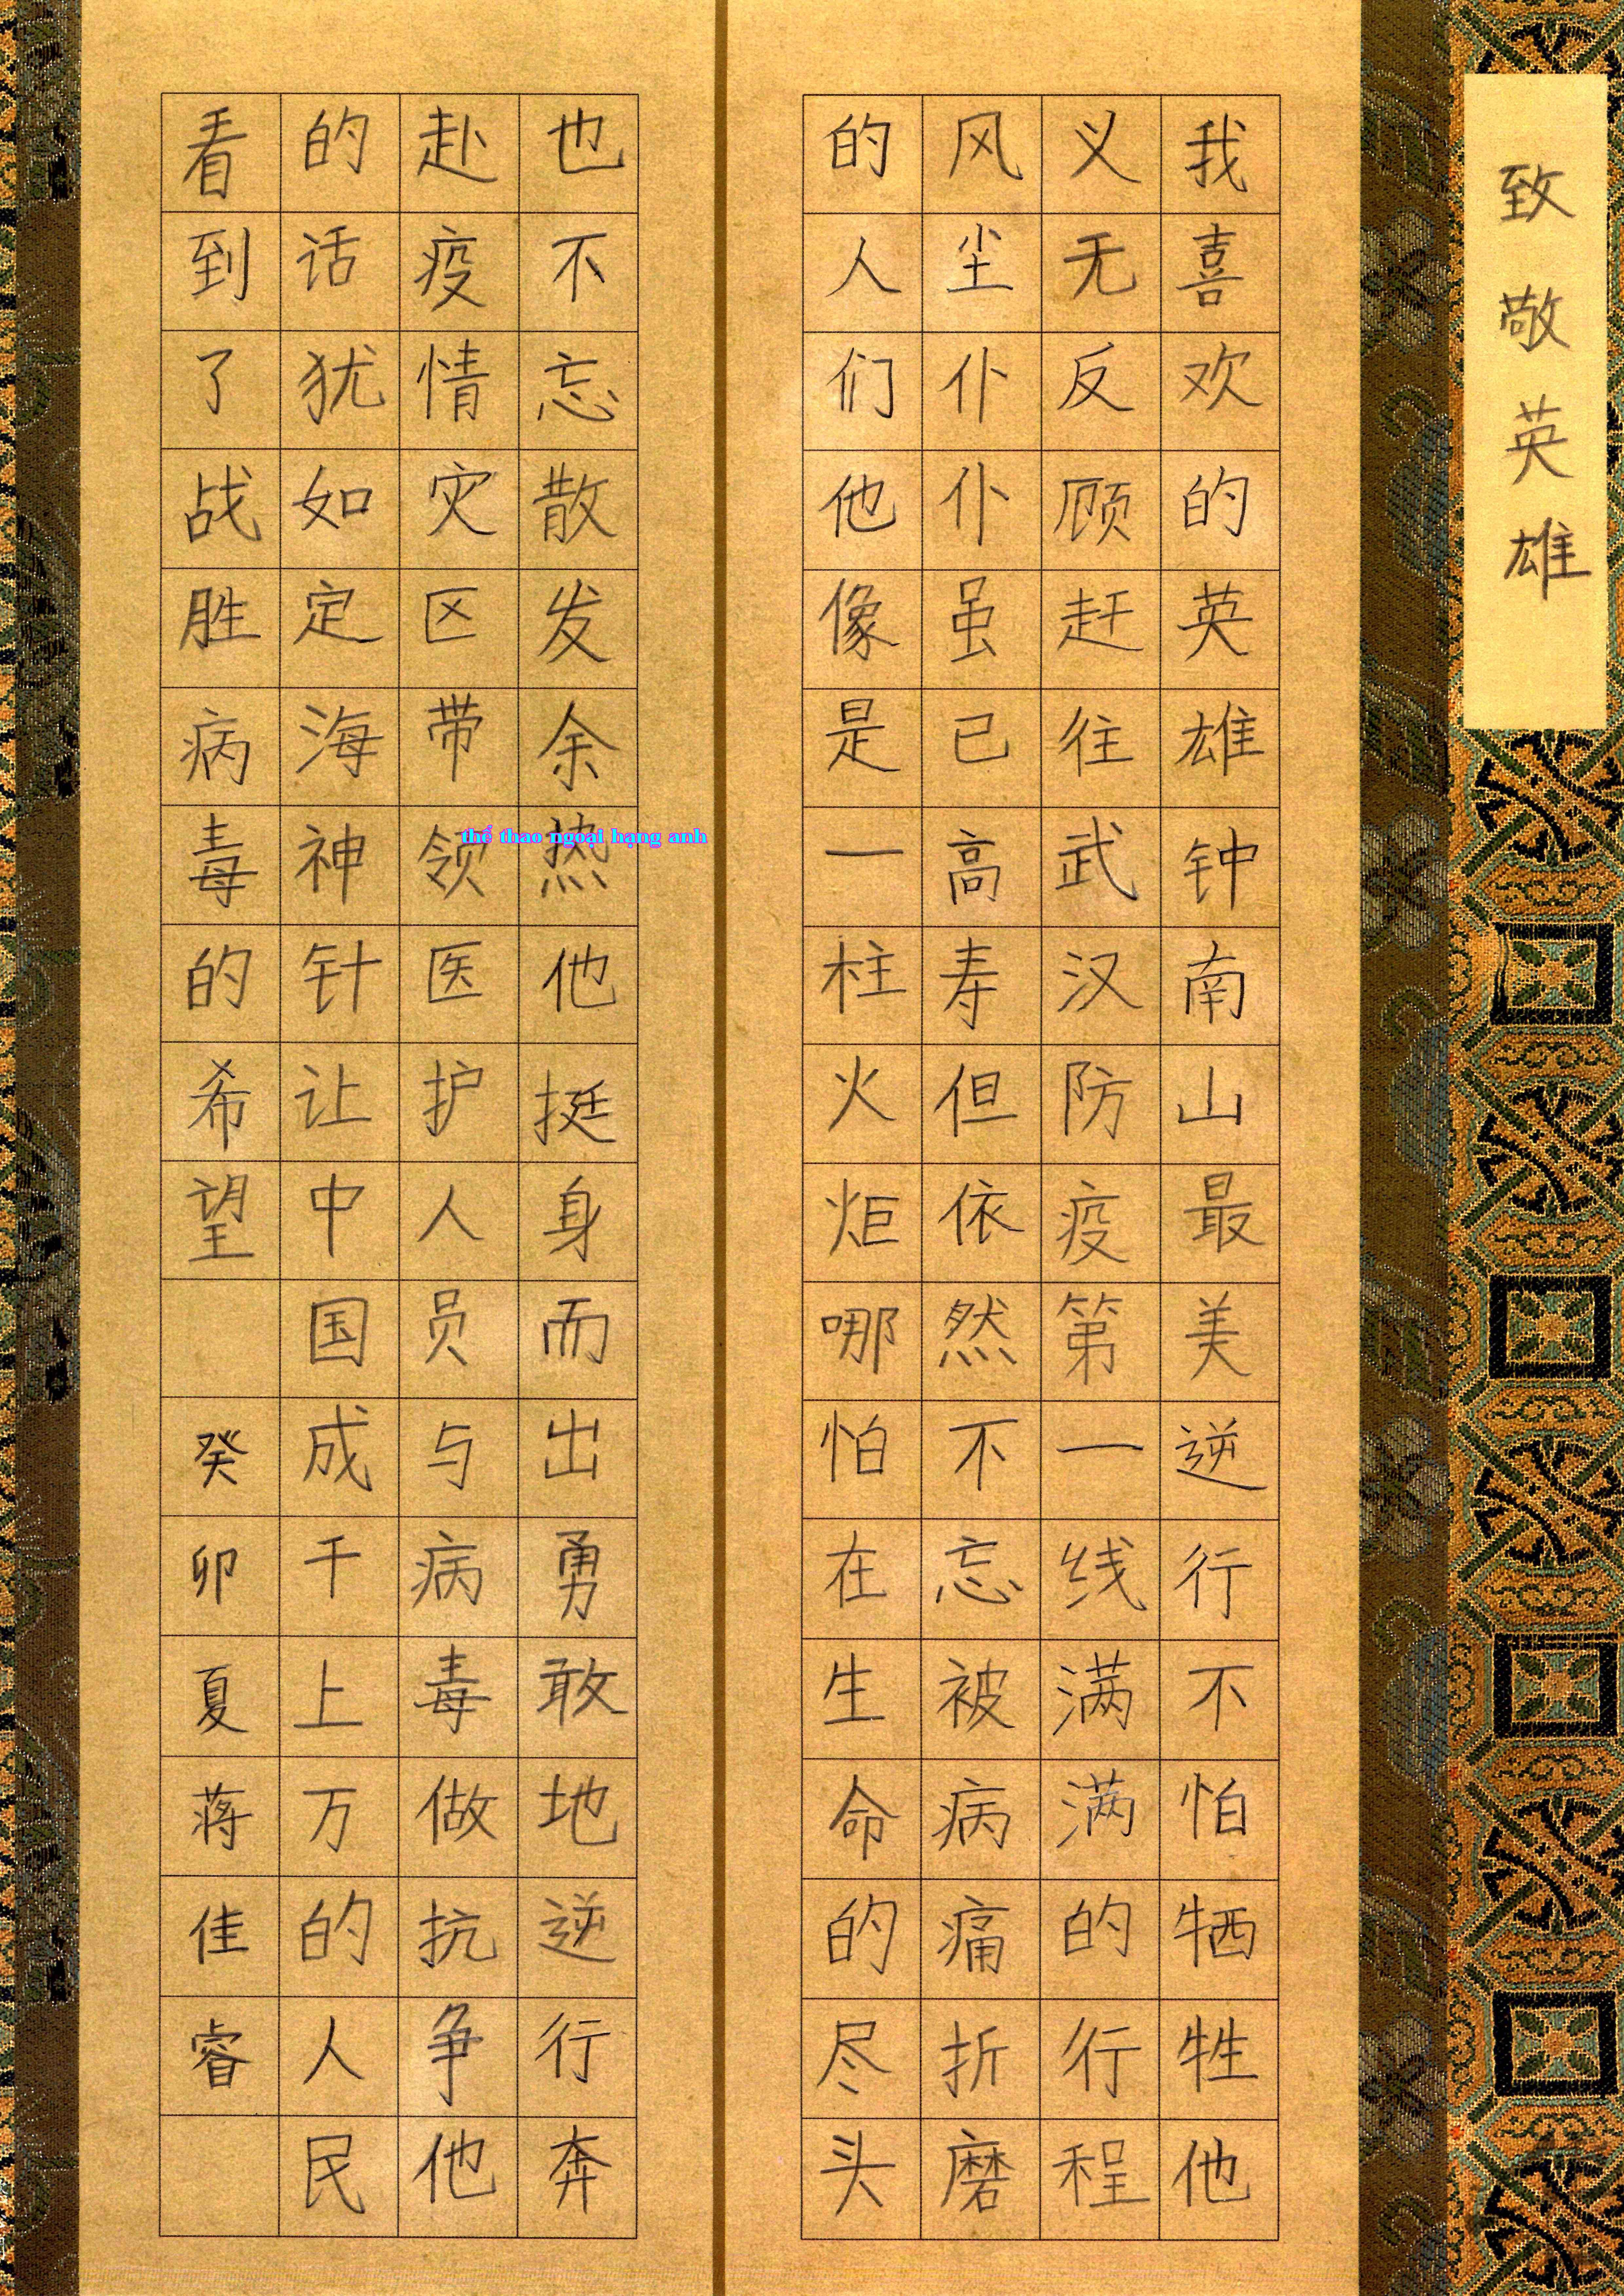 致敬英雄
我喜欢的英雄钟南山最美逆行不怕牺牲他
义无反顾赶往武汉防疫第一线满满的行程
风尘仆仆虽已高寿但依然不忘被病痛折磨
的人们他像是一柱火炬哪怕在生命的尽头
也不忘散发余热他挺身而出勇敢地逆行奔
赴疫情灾区带领医护人员与病毒做抗争他
的话犹如定海神针让中国成千上万的人民
看到了战胜病毒的希望 癸卯夏蒋佳睿
thể thao ngoại hạng anh